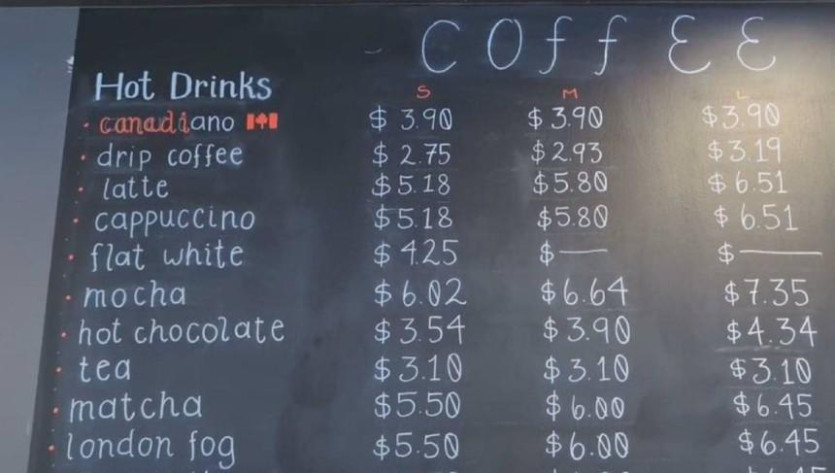 COffEE
Hot Drinks S M L
· canadiano $ 3.90 $ 3.90 $3.90
· drip coffee $ 2.75 $2.93 $3.19
· latte $5.18 $5.80 $6.51
· cappuccino $5.18 $5.80 $6.51
· flat white $ 4.25 $— $—
· mocha $6.02 $6.64 $7.35
· hot chocolate $3.54 $3.90 $4.34
· tea $3.10 $3.10 $3.10
· matcha $5.50 $6.00 $6.45
· london fog $5.50 $6.00 $6.45